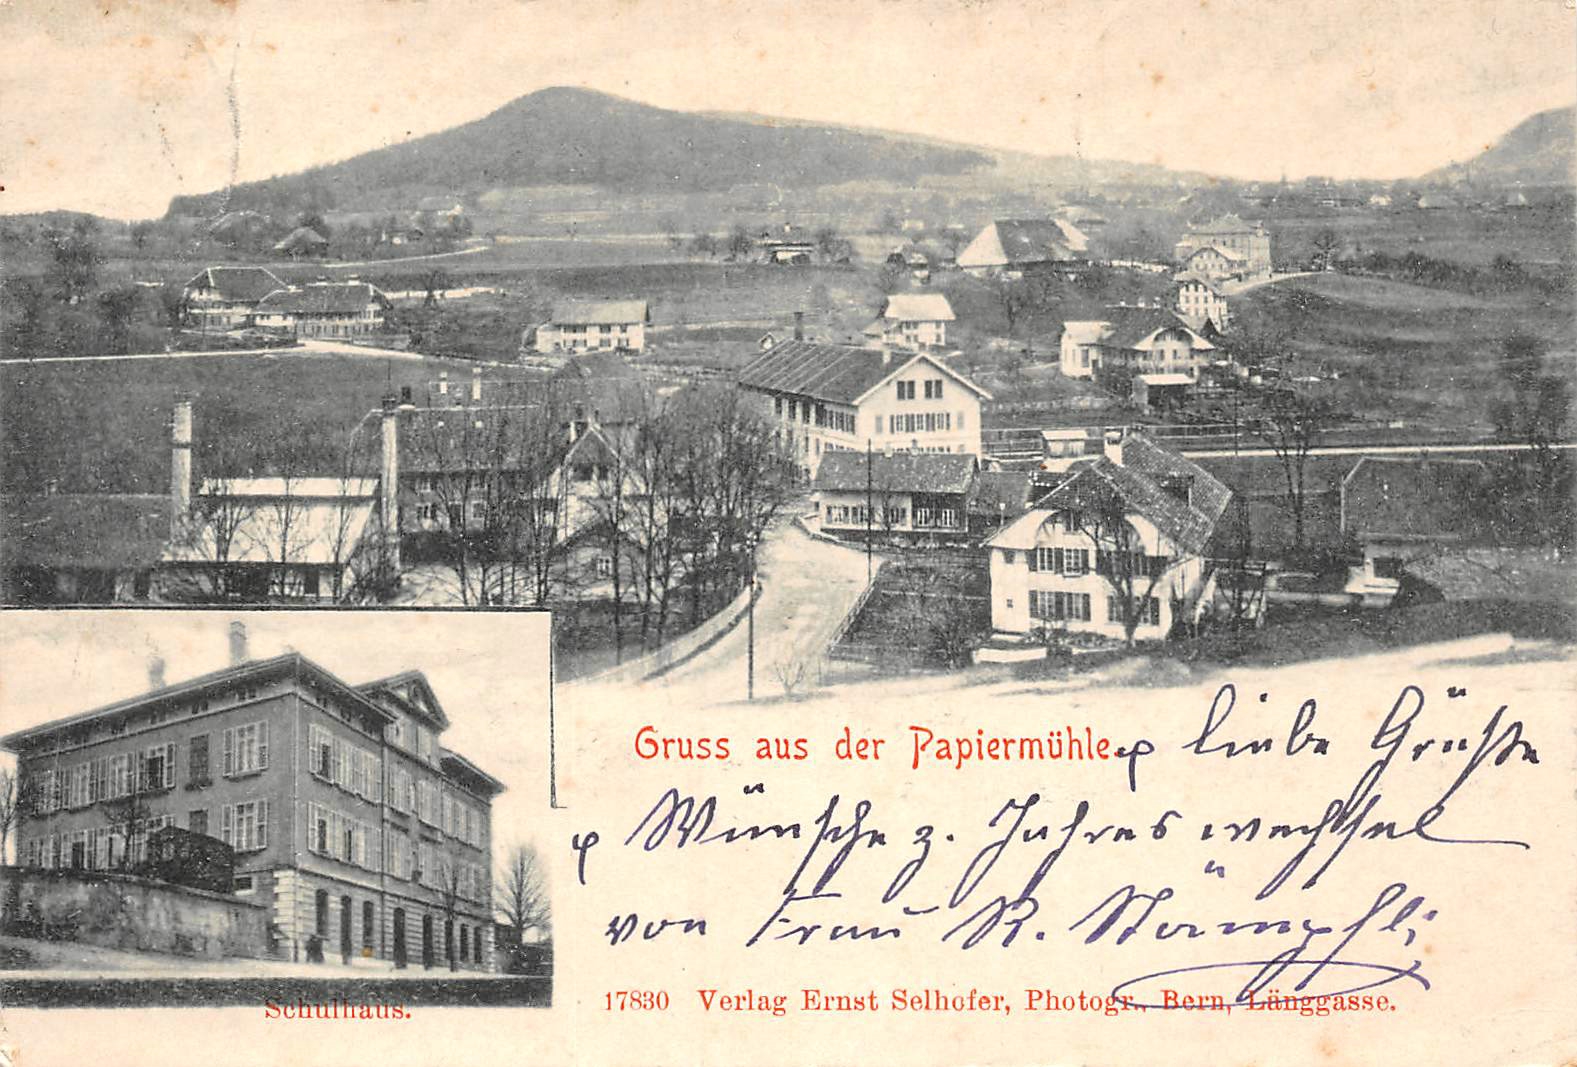 Gruss aus der Papiermühle. & liebe Grüße
& Wünsche z. Jahres wechsel
von Frau R. Stämpfli
Schulhaus.
17830 Verlag Ernst Selhofer, Photogr., Bern, Länggasse.